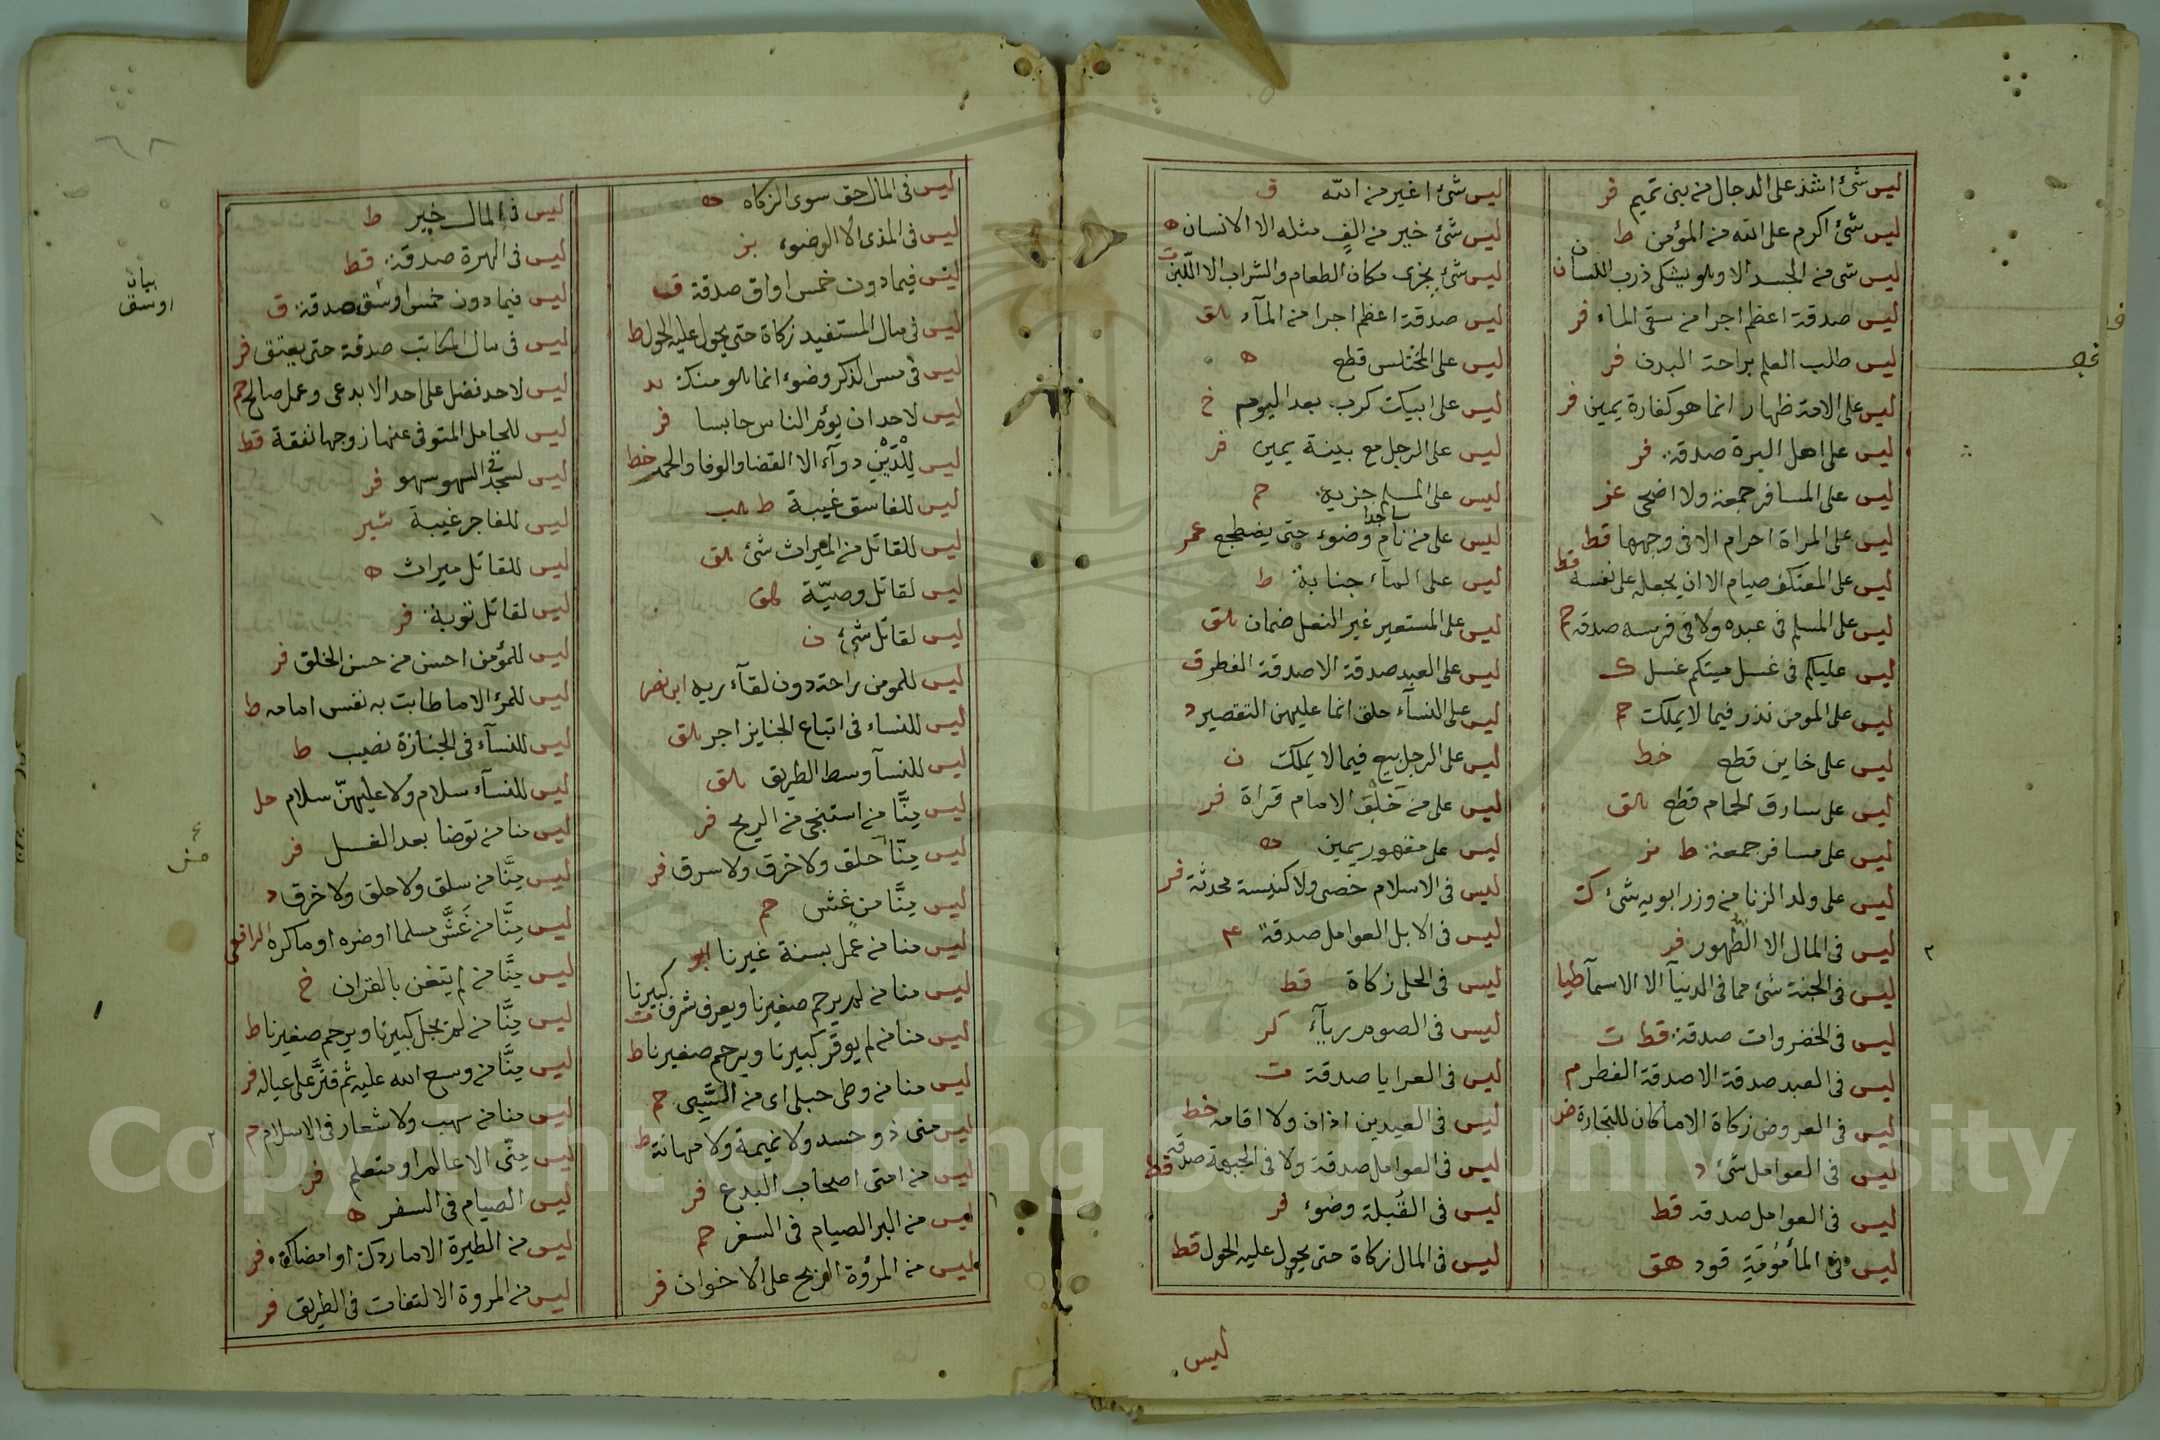 ليس شئ اشد على الدجال من بنى تميم فر
ليس شئ اكرم على الله من المؤمن ط
ليس شئ من الجسد الا وهو يشكى ذرب اللسان ن
ليس صدقة اعظم اجرا من سقى الماء فر
ليس طلب العلم براحة البدن فر
ليس على الامة ظهار انما هو كفارة يمين فر
ليس على اهل البرة صدقة فر
ليس على المسافر جمعة ولا اضحى عز
ليس على المراة احرام الا فى وجهها قط
ليس على المعتكف صيام الا ان يجعله على نفسه قط
ليس على المسلم فى عبده ولا فى فرسه صدقة حم
ليس عليكم فى غسل ميتكم غسل ك
ليس على المومن نذر فيما لا يملك حم
ليس على خاين قطع خط
ليس على سارق الحمام قطع هق
ليس على مسافر جمعة ط
ليس على ولد الزنا من وزر ابويه شئ ك
ليس فى المال الا الطهور فر
ليس فى الجنة شئ مما فى الدنيا الا الاسمآ طيا
ليس فى الخضروات صدقة قط ت
ليس فى العبد صدقة الا صدقة الفطر م
ليس فى العروض زكاة الا ما كان للتجارة ض
ليس فى العوامل شئ د
ليس فى العوامل صدقه قط
ليس فى المأمومة قود هق
ليس شئ اغير من الله ق
ليس شئ خير من الف مثله الا الانسان ه
ليس شئ يجزى مكان الطعام والشراب الا اللبن ت
ليس صدقة اعظم اجرا من المآء هق
ليس على المختلس قطع ه
ليس على ابيك كرب بعد اليوم خ
ليس على الرجل مع بينة يمين فر
ليس على المسلم جزية حم
ليس على من نام ساجدا وضوء حتى يضطجع عمر
ليس على المآء جنابة ط
ليس على المستعير غير النعل ضمان هق
ليس على العبد صدقة الا صدقة الفطر ق
ليس على النسآء حلق انما عليهن التقصير د
ليس على الرجل بيع فيما لا يملك ن
ليس على من خلق الامام قراة فر
ليس على مقهور يمين
ليس فى الاسلام خصى ولا كنيسة محدثة فر
ليس فى الابل العوامل صدقة ع
ليس فى الحلى زكاة قط
ليس فى الصوم ريآء كر
ليس فى العرايا صدقة ت
ليس فى العيدين اذان ولا اقامه خط
ليس فى العوامل صدقة ولا فى الجبهة صدقة قط
ليس فى القبلة وضوء فر
ليس فى المال زكاة حتى يحول عليه الحول قط
ليس
ليس فى المال حق سوى الزكاه ه
ليس فى المذى الا الوضوء بز
ليس فيما دون خمس اواق صدقة ق
ليس فى مال المستفيد زكاة حتى يحول عليه الحول ط
ليس فى مس الذكر وضوء انما هو منك
ليس لاحد ان يؤم الناس جابسا فر
ليس للدين دوآء الا القضا والوفا والحمد خط
ليس للفاسق غيبة ط هب
ليس للقاتل من الميراث شئ هق
ليس لقاتل وصية هق
ليس لقاتل شئ ن
ليس للمومن راحة دون لقآء ربه ابن نصر
ليس للنساء فى اتباع الجنايز اجر هق
ليس للنسآ وسط الطريق هق
ليس منا من استنجى من الريح فر
ليس منا حلق ولا خرق ولا سرق فر
ليس منا من غش حم
ليس منا من عمل بسنة غيرنا
ليس منا من لم يرحم صغيرنا ويعرف شرف كبيرنا ت
ليس منا من لم يوقر كبيرنا ويرحم صغيرنا ط
ليس منا من وطى حبلى اى من السبى حم
ليس منى ذو حسد ولا نميمة ولا كهانة ط
ليس من امتى اصحاب البدع فر
ليس من البر الصيام فى السفر حم
ليس من المرؤة الربح على الاخوان فر
ليس فى المال خير ط
ليس فى الهرة صدقة قط
ليس فيما دون خمس اوسق صدقة ق
ليس فى مال المكاتب صدقة حتى يعتق فر
ليس لاحد فضل على احد الا بدعى وعمل صالح حم
ليس للحامل المتوفى عنها زوجها نفقة قط
ليس لسجد فى السهو سهو فر
ليس للفاجر غيبة شير
ليس للقاتل ميراث ه
ليس لقاتل توبة فر
ليس للمؤمن احسن من حسن الخلق فر
ليس للمرء الا ما طابت به نفس امامه ط
ليس للنسآء فى الجنازة نصيب ط
ليس للنسآء سلام ولا عليهن سلام حل
ليس منا من توضا بعد الغسل فر
ليس منا من سلق ولا حلق ولا خرق د
ليس منا من غش مسلما او ضره او ماكره الرافعى
ليس منا من لم يتغن بالقران خ
ليس منا من لم يجل كبيرنا ويرحم صغيرنا ط
ليس منا من وسع الله عليه ثم قتر على عياله فر
ليس منا من نهب ولا شعار فى الاسلام حم
ليس منى الا عالم او متعلم فر
ليس الصيام فى السفر ه
ليس من الطيرة الا ما ردك او امضاك فر
ليس من المروة الالتفات فى الطريق فر
بيان
اوسق
Copyright © King Saud University